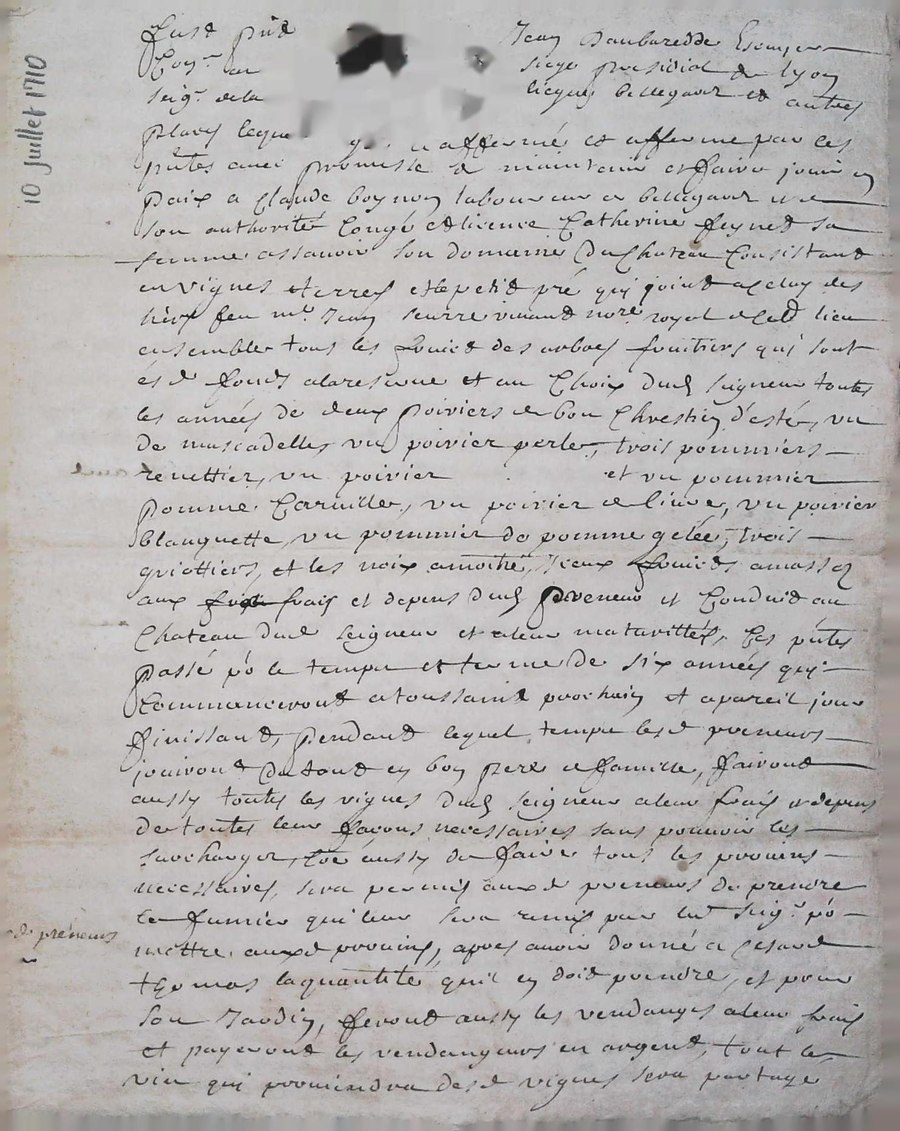 10 Juillet 1710
Fust pñt Jean Daubaredde Escuyer
Con.er au siege presidial de Lyon
seig.r de la Bellegarde et autres
places leque a affermé et afferme par ces
pñtes avec promesse de maintenir et faire jouir en
paix a Claude boynon laboureur a bellegarde et de
son authorité Congé et licence Catherine feynet sa
femme assavoir son domaine du Chateau Consistant
en vignes et terres et le petit pré qui joint a clos des
heirs feu m.e Jean seurre vivant no.re royal dud lieu
ensemble tous les fruict des arbres fruitiers qui sont
esd fonds alareserve et au Choix dud seigneur toutes
les années de deux poiriers de bon Chrestien d'esté, un
de muscadelles un poirier perle, trois pommiers
renettier, un poirier et un pommier
pomme Carville, un poirier de livre, un poirier
blanquette, un pommier de pomme gelée, trois
griottiers, et les noix amoitié, Iceux fruicts amassez
aux frais et depens dud Preneur et Conduit au
Chateau dud seigneur et aleur maturittés, Ces pñtes
passé po le temps et terme de six années qui
Commanceront a toussaint prochain et a pareil jour
finissant, pendant lequel temps lesd preneurs
jouiront du tout en bon pere de famille, fairont
aussy toutes les vignes dud seigneur aleur frais et depens
de toutes leur façons necessaires sans pouvoir les
surcharger, Coe aussy de faire tous les provins
necessaires, sera permis auxd preneurs de prendre
le fumier qui leur sera remis par led seig.r po
d preneurs
mettre auxd provins, apres avoir donné a Cesard
thomas la quantité qu'il en doit prendre, et pour
son Jardin, feront aussy les vendanges aleur frais
et payeront les vendangeurs en argent, tout le
vin qui proviendra desd vignes sera partagé